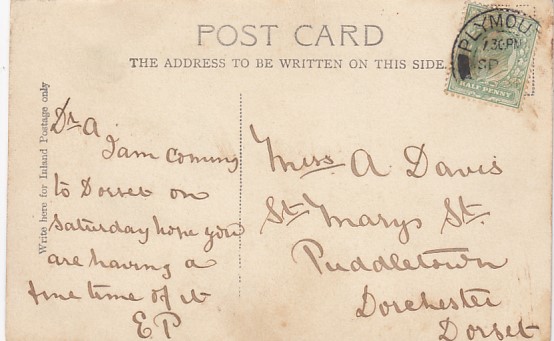 POST CARD
THE ADDRESS TO BE WRITTEN ON THIS SIDE.
Write here for Inland Postage only
Dr A
I am coming
to Dorset on
Saturday hope you
are having a
fine time of it
E P
Miss A Davis
St Marys St.
Puddletown
Dorchester
Dorset
PLYMOU
7.30PM
SP
HALF PENNY